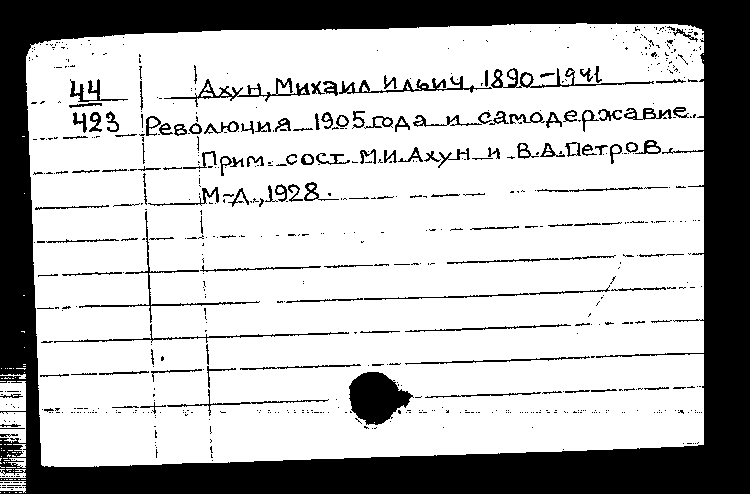 44 Ахун, Михаил Ильич, 1890-1941
423 Революция 1905 года и самодержавие.
Прим. сост. М.И.Ахун и В.А.Петров.
М-Л., 1928.